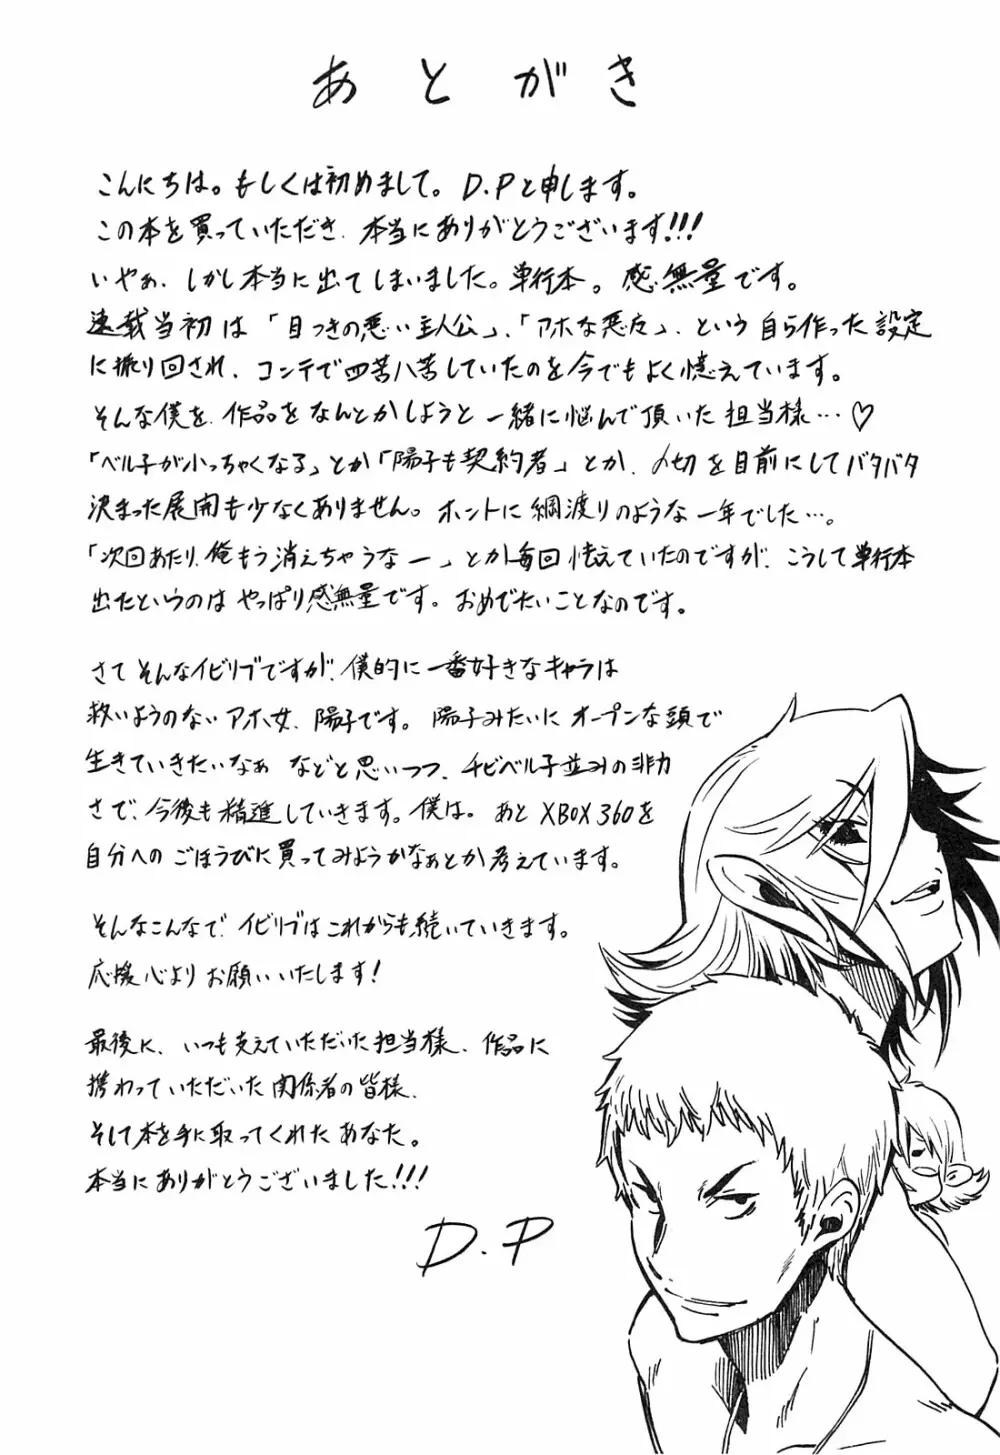 あとがき
こんにちは。もしくは初めまして。D.Pと申します。
この本を買っていただき、本当にありがとうございます!!!
いやぁ、しかし本当に出てしまいました。単行本。感無量です。
連載当初は「目つきの悪い主人公」、「アホな悪女」、という自ら作った設定
に振り回され、コンテで四苦八苦していたのを今でもよく憶えています。
そんな僕を、作品をなんとかしようと一緒に悩んで頂いた担当様…♡
「ベル子が小っちゃくなる」とか「陽子も契約者」とか、〆切を目前にしてバタバタ
決まった展開も少なくありません。ホントに綱渡りのような一年でした…。
「次回あたり、俺もう消えちゃうなー」とか毎回怯えていたのですが、こうして単行本
出たというのはやっぱり感無量です。おめでたいことなのです。
さてそんなイビリブですが、僕的に一番好きなキャラは
救いようのないアホ女、陽子です。陽子みたいにオープンな頭で
生きていきたいなぁなどと思いつつ、チビベル子並みの非力
さで、今後も精進していきます。僕は。あとXBOX360を
自分へのごほうびに買ってみようかなぁとか考えています。
そんなこんなで、イビリブはこれからも続いていきます。
応援心よりお願いいたします!
最後に、いつも支えていただいた担当様、作品に
携わっていただいた関係者の皆様、
そして本を手に取ってくれたあなた。
本当にありがとうございました!!!
D.P